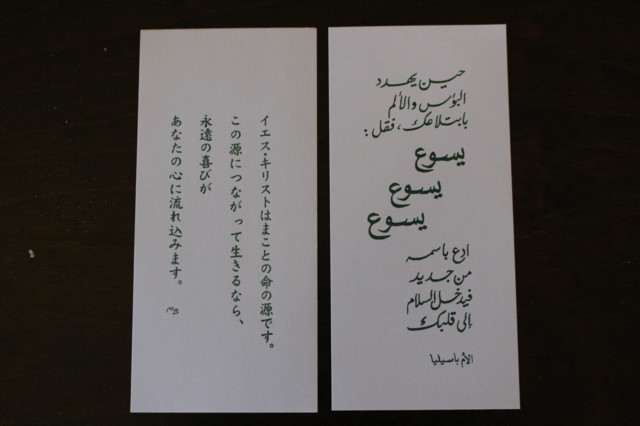 イエス・キリストはまことの命の源です。
この源につながって生きるなら、
永遠の喜びが
あなたの心に流れ込みます。
MB
حين يهدد
البؤس والألم
بابتلاعك، فقل:
يسوع
يسوع
يسوع
ادع باسمه
من جديد
فيدخل السلام
إلى قلبك
الأم باسيليا